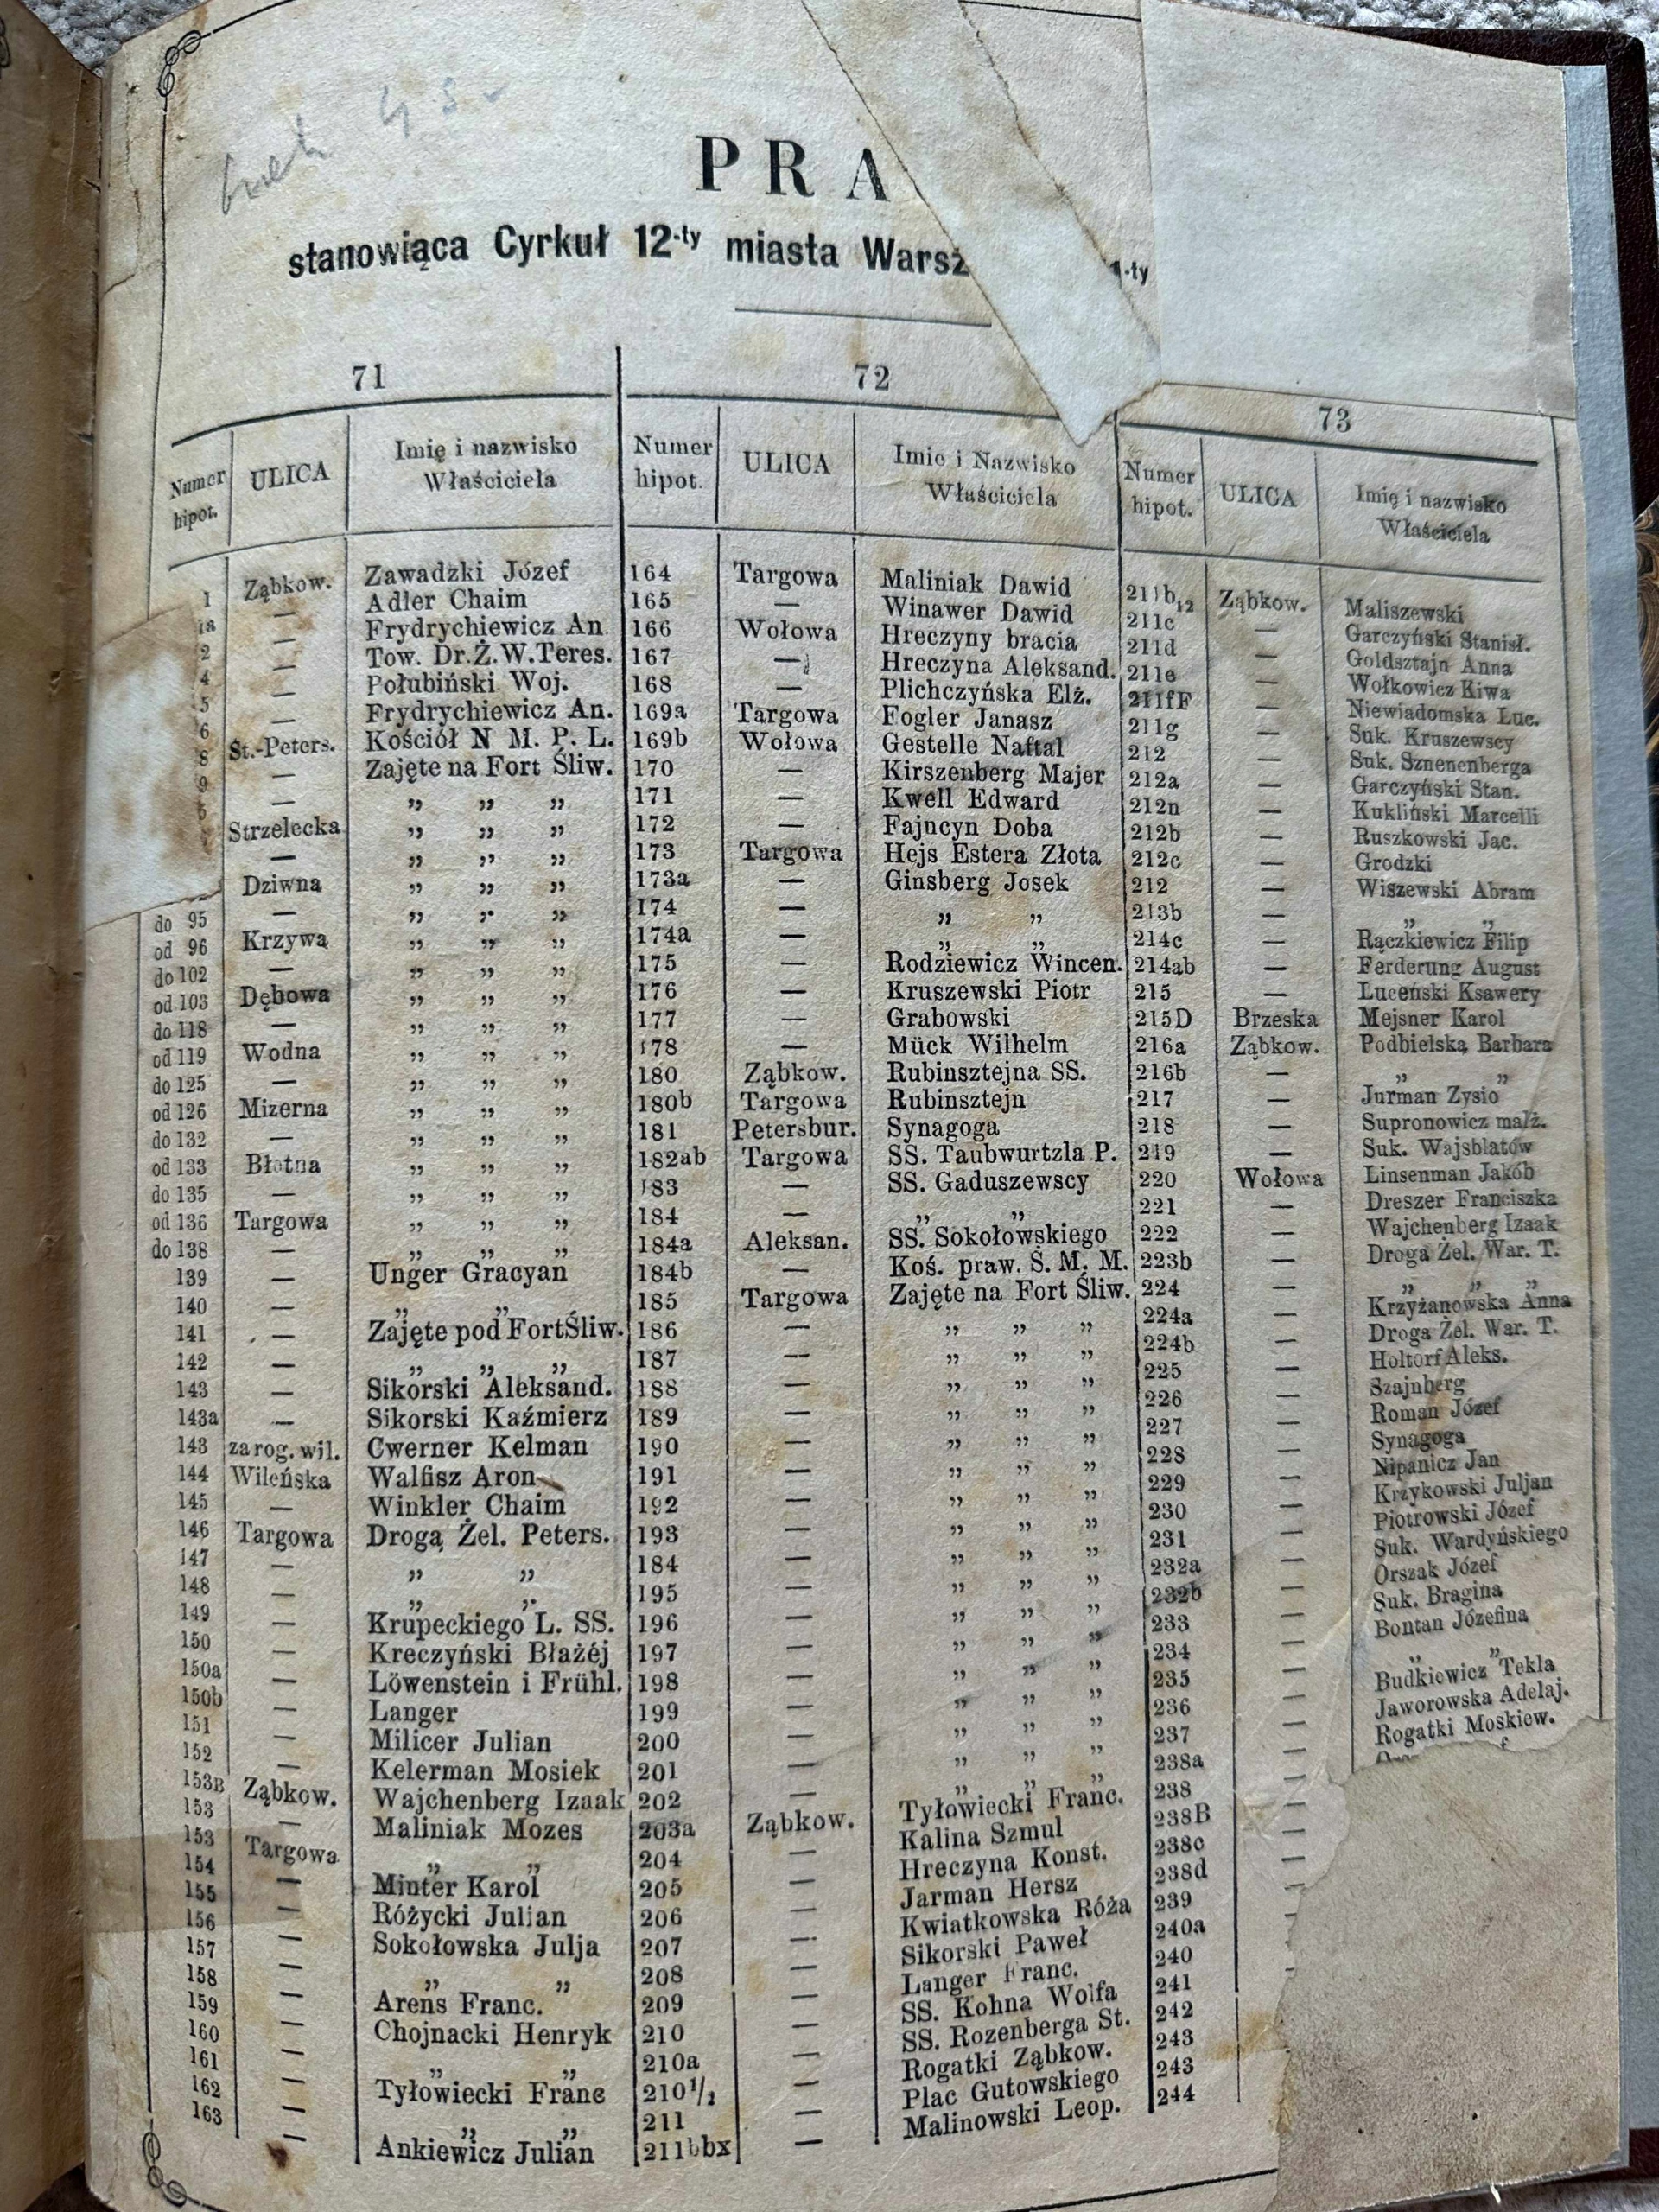 PRA
stanowiąca Cyrkuł 12-ty miasta Warsz
1-ty
71
Numer hipot. ULICA Imię i nazwisko Właściciela
1 Ząbkow. Zawadzki Józef
1a — Adler Chaim
2 — Frydrychiewicz An.
4 — Tow. Dr.Ż.W.Teres.
5 — Połubiński Woj.
6 — Frydrychiewicz An.
8 St.-Peters. Kościół N M. P. L.
9 — Zajęte na Fort Śliw.
— „ „ „
Strzelecka „ „ „
— „ „ „
Dziwna „ „ „
do 95 — „ „ „
od 96 Krzywa „ „ „
do 102 — „ „ „
od 103 Dębowa „ „ „
do 118 — „ „ „
od 119 Wodna „ „ „
do 125 — „ „ „
od 126 Mizerna „ „ „
do 132 — „ „ „
od 133 Błotna „ „ „
do 135 — „ „ „
od 136 Targowa „ „ „
do 138 — „ „ „
139 — Unger Gracyan
140 — „ „
141 — Zajęte pod Fort Śliw.
142 — „ „ „
143 — Sikorski Aleksand.
143a — Sikorski Kaźmierz
143 za rog. wil. Cwerner Kelman
144 Wileńska Walfisz Aron
145 — Winkler Chaim
146 Targowa Droga Żel. Peters.
147 — „ „
148 — „ „
149 — Krupeckiego L. SS.
150 — Kreczyński Błażéj
150a — Löwenstein i Frühl.
150b — Langer
151 — Milicer Julian
152 — Kelerman Mosiek
153B Ząbkow. Wajchenberg Izaak
153 — Maliniak Mozes
153 Targowa „ „
154 — Minter Karol
155 — Różycki Julian
156 — Sokołowska Julja
157 — „ „
158 — Arens Franc.
159 — Chojnacki Henryk
160 — „ „
161 — Tyłowiecki Franc
162 — „ „
163 — Ankiewicz Julian
72
Numer hipot. ULICA Imie i Nazwisko Właściciela
164 Targowa Maliniak Dawid
165 — Winawer Dawid
166 Wołowa Hreczyny bracia
167 — Hreczyna Aleksand.
168 — Plichczyńska Elż.
169a Targowa Fogler Janasz
169b Wołowa Gestelle Naftal
170 — Kirszenberg Majer
171 — Kwell Edward
172 — Fajncyn Doba
173 Targowa Hejs Estera Złota
173a — Ginsberg Josek
174 — „ „
174a — „ „
175 — Rodziewicz Wincen.
176 — Kruszewski Piotr
177 — Grabowski
178 — Mück Wilhelm
180 Ząbkow. Rubinsztejna SS.
180b Targowa Rubinsztejn
181 Petersbur. Synagoga
182ab Targowa SS. Taubwurtzla P.
183 — SS. Gaduszewscy
184 — „ „
184a Aleksan. SS. Sokołowskiego
184b — Koś. praw. Ś. M. M.
185 Targowa Zajęte na Fort Śliw.
186 — „ „ „
187 — „ „ „
188 — „ „ „
189 — „ „ „
190 — „ „ „
191 — „ „ „
192 — „ „ „
193 — „ „ „
184 — „ „ „
195 — „ „ „
196 — „ „ „
197 — „ „ „
198 — „ „ „
199 — „ „ „
200 — „ „ „
201 — „ „ „
202 — „ „ „
203a Ząbkow. Tyłowiecki Franc.
204 — Kalina Szmul
205 — Hreczyna Konst.
206 — Jarman Hersz
207 — Kwiatkowska Róża
208 — Sikorski Paweł
209 — Langer Franc.
210 — SS. Kohna Wolfa
210a — SS. Rozenberga St.
210½ — Rogatki Ząbkow.
211 — Plac Gutowskiego
211bbx — Malinowski Leop.
73
Numer hipot. ULICA Imię i nazwisko Właściciela
211b12 Ząbkow. Maliszewski
211c — Garczyński Stanisł.
211d — Goldsztajn Anna
211e — Wołkowicz Kiwa
211fF — Niewiadomska Luc.
211g — Suk. Kruszewscy
212 — Suk. Sznenenberga
212a — Garczyński Stan.
212n — Kukliński Marcelli
212b — Ruszkowski Jac.
212c — Grodzki
212 — Wiszewski Abram
213b — „ „
214c — Rączkiewicz Filip
214ab — Ferderung August
215 — Luceński Ksawery
215D Brzeska Mejsner Karol
216a Ząbkow. Podbielska Barbara
216b — „ „
217 — Jurman Zysio
218 — Supronowicz małż.
219 — Suk. Wajsblatów
220 Wołowa Linsenman Jakób
221 — Dreszer Franciszka
222 — Wajchenberg Izaak
223b — Droga Żel. War. T.
224 — „ „ „
224a — Krzyżanowska Anna
224b — Droga Żel. War. T.
225 — Holtorf Aleks.
226 — Szajnberg
227 — Roman Józef
228 — Synagoga
229 — Nipanicz Jan
230 — Krzykowski Juljan
231 — Piotrowski Józef
232a — Suk. Wardyńskiego
232b — Orszak Józef
233 — Suk. Bragina
234 — Bontan Józefina
235 — „ „
236 — Budkiewicz Tekla
237 — Jaworowska Adelaj.
238a — Rogatki Moskiew.
238 —
238B —
238c —
238d —
239
240a
240
241
242
243
243
244